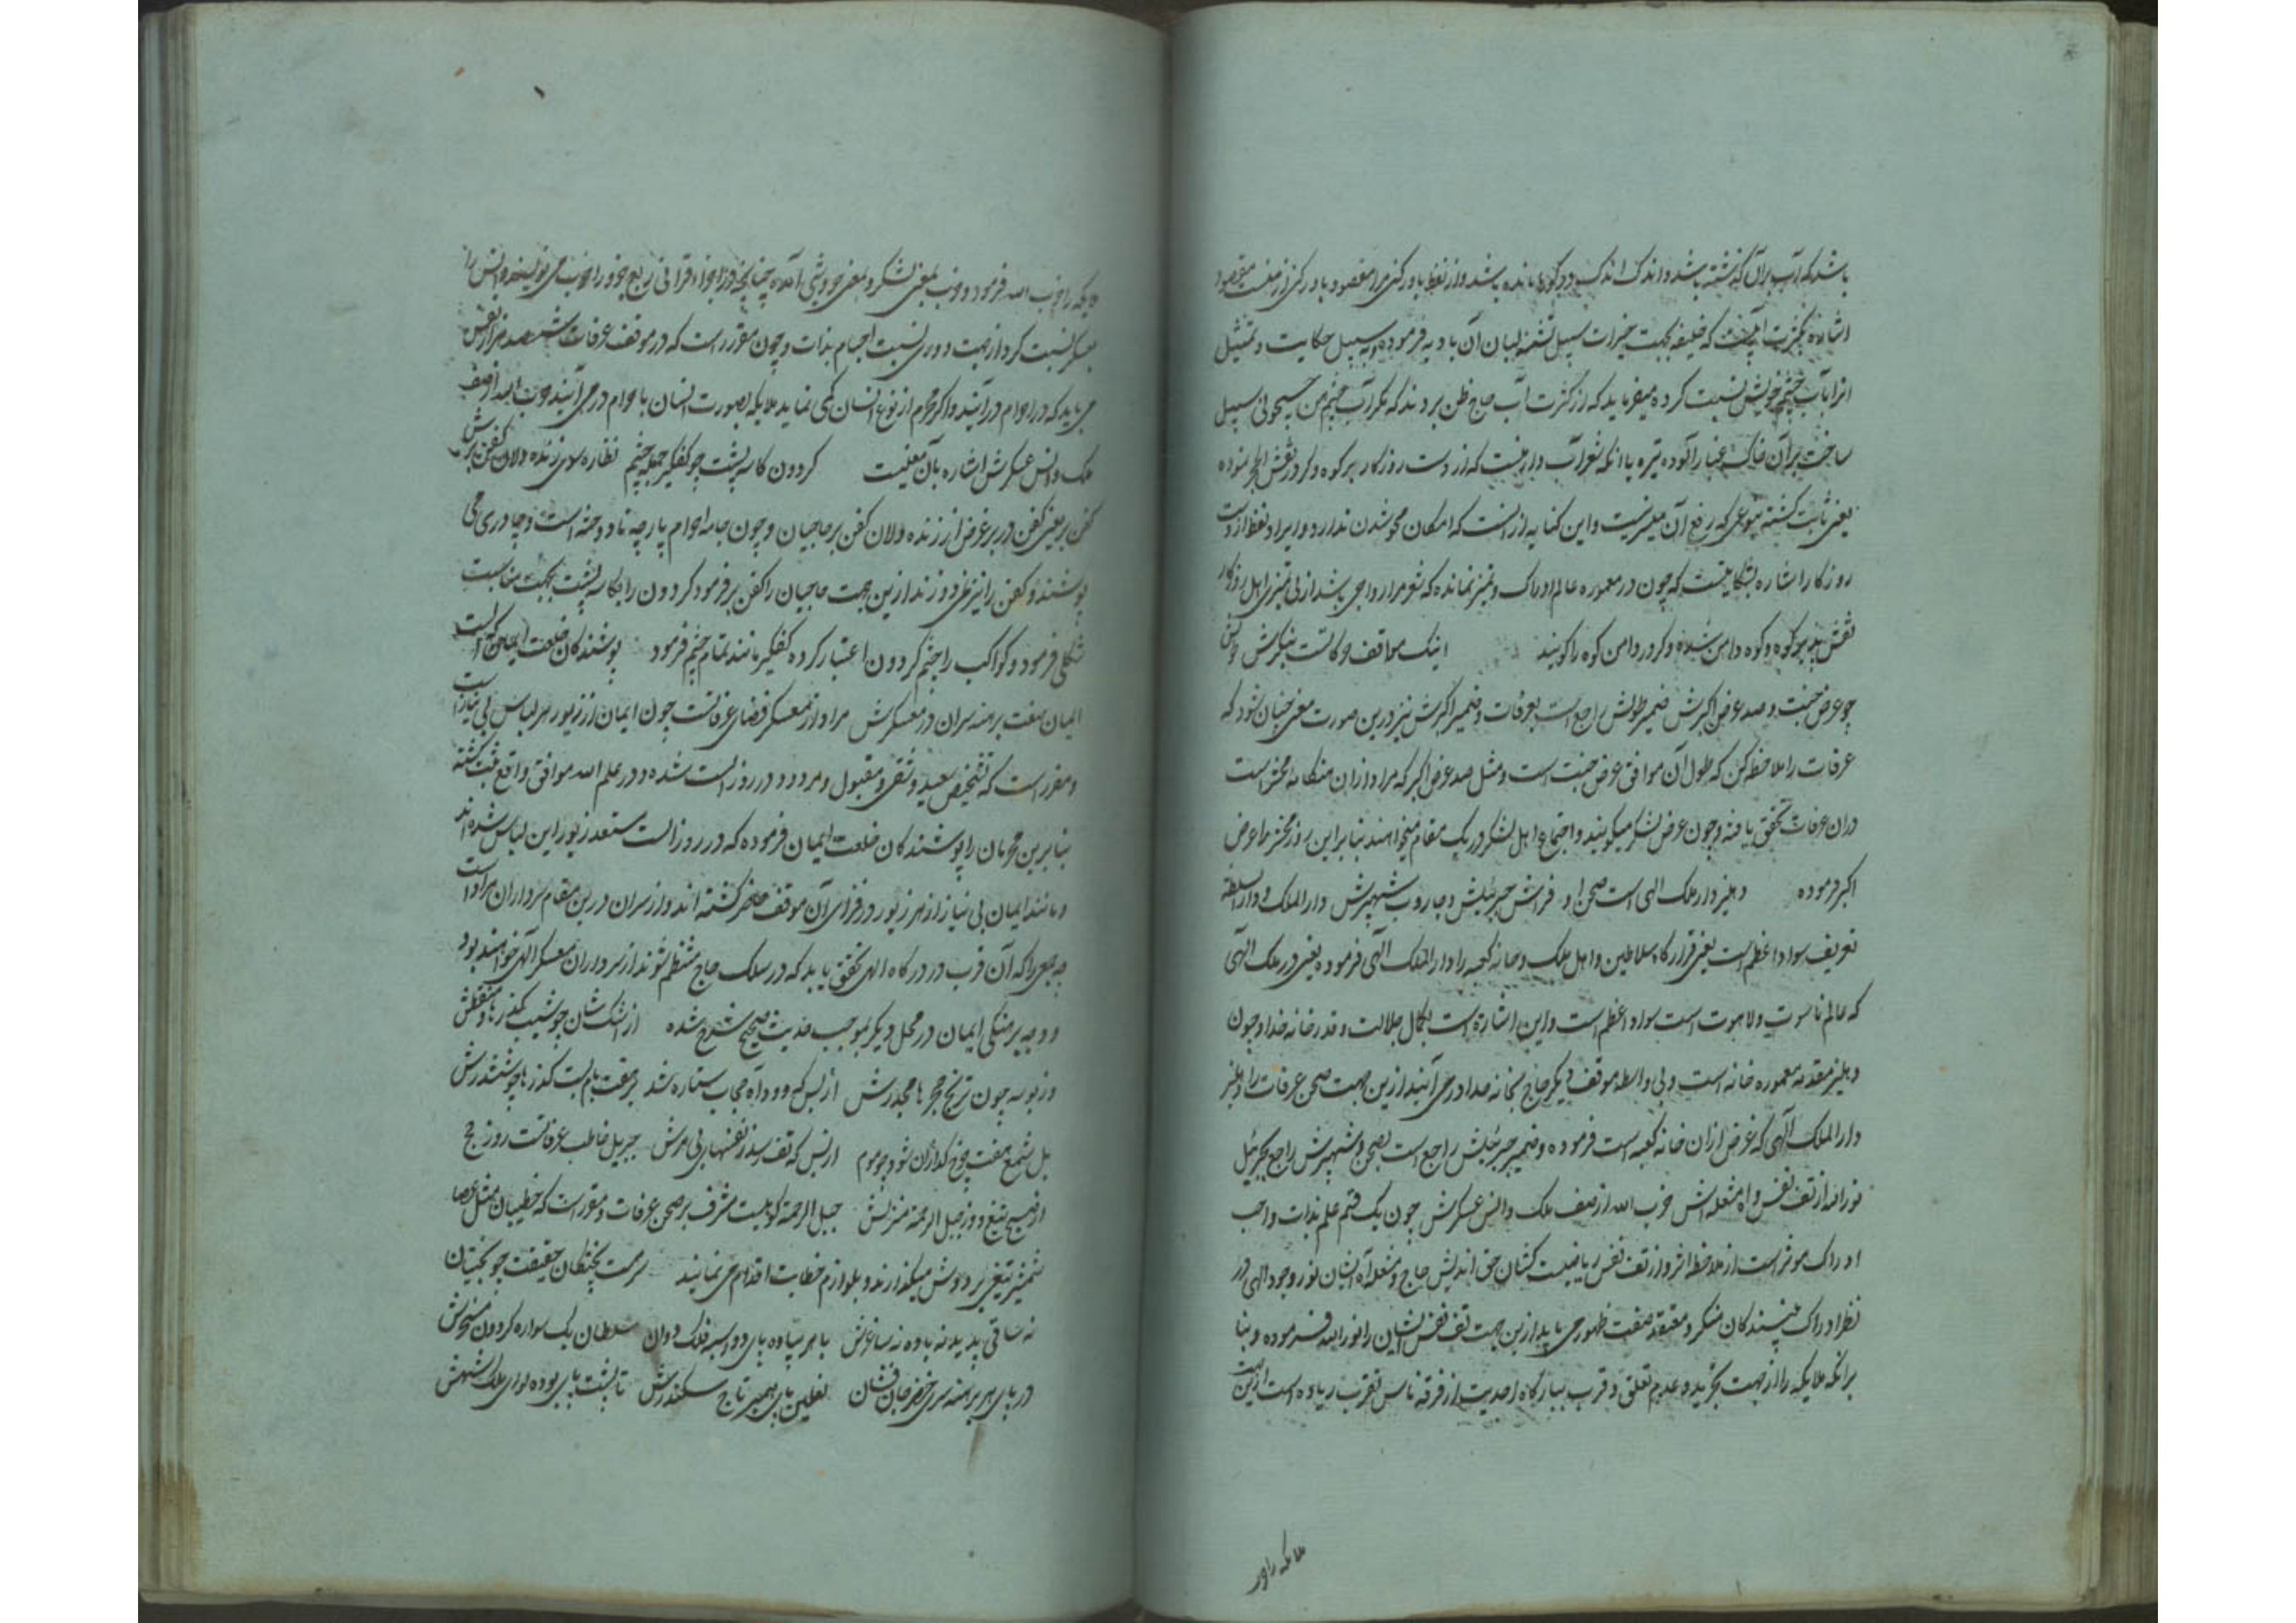 باشد که آب بران گذشته باشد و اندک اندک در گوی مانده باشد و از لفظ باور کنی مرا مقصود باور کنی از صفت مقصود
اشاره بکثرت آبست که خلیفه بجهت خیرات سبیل تشنه لبان آن بادیه فرموده و بسبیل حکایت و تمثیل
انرا بآب چشم خویش نسبت کرده میفرماید که از کثرت آب حاج ظن بردند که مگر آب چشم من جیحونی سبیل
ساخت بر آن خاک غبار آلوده تیره باانکه شعر آب دار نیست که از دست روزگار بر کوه و کردر نقش الحجر نموده
یعنی ثابت گشته بنوعی که رفع آن میسر نیست و این کنایه از انست که امکان محو شدن ندارد و ایراد لفظ از دست
روزگار اشاره بشکایتست که چون در معموره عالم ادراک و تمیز نمانده که شعر مرا رواجی باشد از بی تمیزی اهل روزگار
نقش پذیر کوه و کوه دامن شده و کردر دامن کوه را گویند اینک مواقف عرفاتست بنگرش طولش
چو عرض جنت و صد عرض اکبرش ضمیر طولش راجع است بعرفات و ضمیر اکبرش نیز درین صورت معنی چنان بود که
عرفات را ملاحظه کن که طول آن موافق عرض جنت است و مثل صد عرض اکبر که مراد ازان هنگامه محشر است
دران عرفات تحقق یافته و چون عرض لشکر میگویند و اجتماع اهل لشکر در یک مقام میخواهند بنابراین روز محشر را عرض
اکبر فرموده دهلیز دار ملک الهی است صحن او فراش جبرئیلش و جاروب شهپرش دار الملک و دار السلطنه
تعریف سواد اعظم است یعنی قرارگاه سلاطین و اهل ملک و خانه کعبه را دار الملک الهی فرموده یعنی در ملک الهی
که عالم ناسوت و لاهوت است سواد اعظم است و این اشارة است بکمال جلالت و قدر خانه خدا و چون
دهلیز مقدمه معموره خانه است و بی واسطه موقف دیگر حاج بخانه خدا در می آیند ازین جهت صحن عرفات را دهلیز
دار الملک الهی که غرض ازان خانه کعبه است فرموده و ضمیر جبرئیلش راجع است بصحن و شهپرش راجع بجبرئیل
نور الله از تف نفس و آه مشعله اش حزب الله از صف ملک و انس عسکرش چون یک قسم علم بذات واجب
ادراک موثر است از ملاحظه اثر و از تف نفس ریاضت کشان حق اندیش حاج و مشعله آه ایشان نور وجود الهی در
نظر ادراک بینندگان منکر و معتقد صفت ظهور می یابد ازین جهت تف نفس ایشان را نور الله فرموده و بنا
برانکه ملایکه را از جهت تجرید و عدم تعلق و قرب ببارگاه احدیت از فرقه ناس تقرب زیاده است ازین جهت
ملائکه را حز
ملایکه را حزب الله فرمود و حزب بمعنی لشکر و بمعنی جزو شی آمده چنانچه از اجزاء قرانی ربع جزو را حزب می نویسند و انس را
بعسکر نسبت کرد از جهت دوری نسبت اجسام بذات و چون مقرر است که در موقف عرفات ششصد هزار نفس
می باید که در احرام درآیند و اگر محرم از نوع انسان کمی نماید ملایکه بصورت انسان باحرام در می آیند حزب الله از صف
ملک و انس عسکرش اشاره بآن معنیست گردون کاسه پشت چو کفگیر جمله چشم نظاره سوی زنده دلان کفن برش
کفن بر یعنی کفن در بر غرض از زنده دلان کفن بر حاجیان و چون جامه احرام پارچه نادوخته است و چادری می
پوشند و کفن را نیز نمی دوزند ازین جهت حاجیان را کفن بر فرمود گردون را بکاسه پشت بجهت مناسبت
شکلی فرمود و کواکب را چشم گردون اعتبار کرده کفگیر مانند تمام چشم فرمود پوشندگان خلعت ایمان گه الست
ایمان صفت برهنه سران در معسکرش مراد از معسکر فضای عرفاتست چون ایمان از زیور هر لباس بی نیاز است
و مقرر است که تشخیص سعید و شقی و مقبول و مردود در روز الست شده و در علم الله موافق واقع ثبت گشته
بنابرین محرمان را پوشندگان خلعت ایمان فرموده که در روز الست مستعد زیور این لباس شده اند
و مانند ایمان بی نیاز از هر زیور در فزای آن موقف حاضر گشته اند و از سران درین مقام سرداران مراد است
چه جمعی را که آن قرب در درگاه الهی تحقق یابد که در سلک حاج منتظم شوند از سرداران معسکر الهی خواهند بود
و وجه برهنگی ایمان در محل دیگر بموجب حدیث صحیح شرح شده از اشک شان چو شیب گذرها منقطش
وز بوسه چون ترنج حجرها مجدرش از بس که دود آه حجاب ستاره شد بر هفت بام بست گذرها چو ششدرش
بل شمع هفت چرخ گدازان شود چو موم از بس که تف رسد ز نفسهای بی مرش جبریل خاطب عرفاتست روز حج
از صبح تیغ و وز جبل الرحمه منبرش جبل الرحمة کوهیست مشرف بر صحن عرفات و مقرر است که خطیبان مثل عصا
شمشیر تیغی بر دوش میگذارند و بلوازم خطابت اقدام می نمایند سرمست پختگان حقیقت چو بختیان
نه ساقی پدید نه باده نه ساغرش با هر پیاده پای دو اسبه فلک دوان سلطان یک سواره گردون مسخرش
در پای هر برهنه سری خضر جان فشان نعلین پای همسر تاج سکندرش تا پشت پای بوده لوای ملکشهش